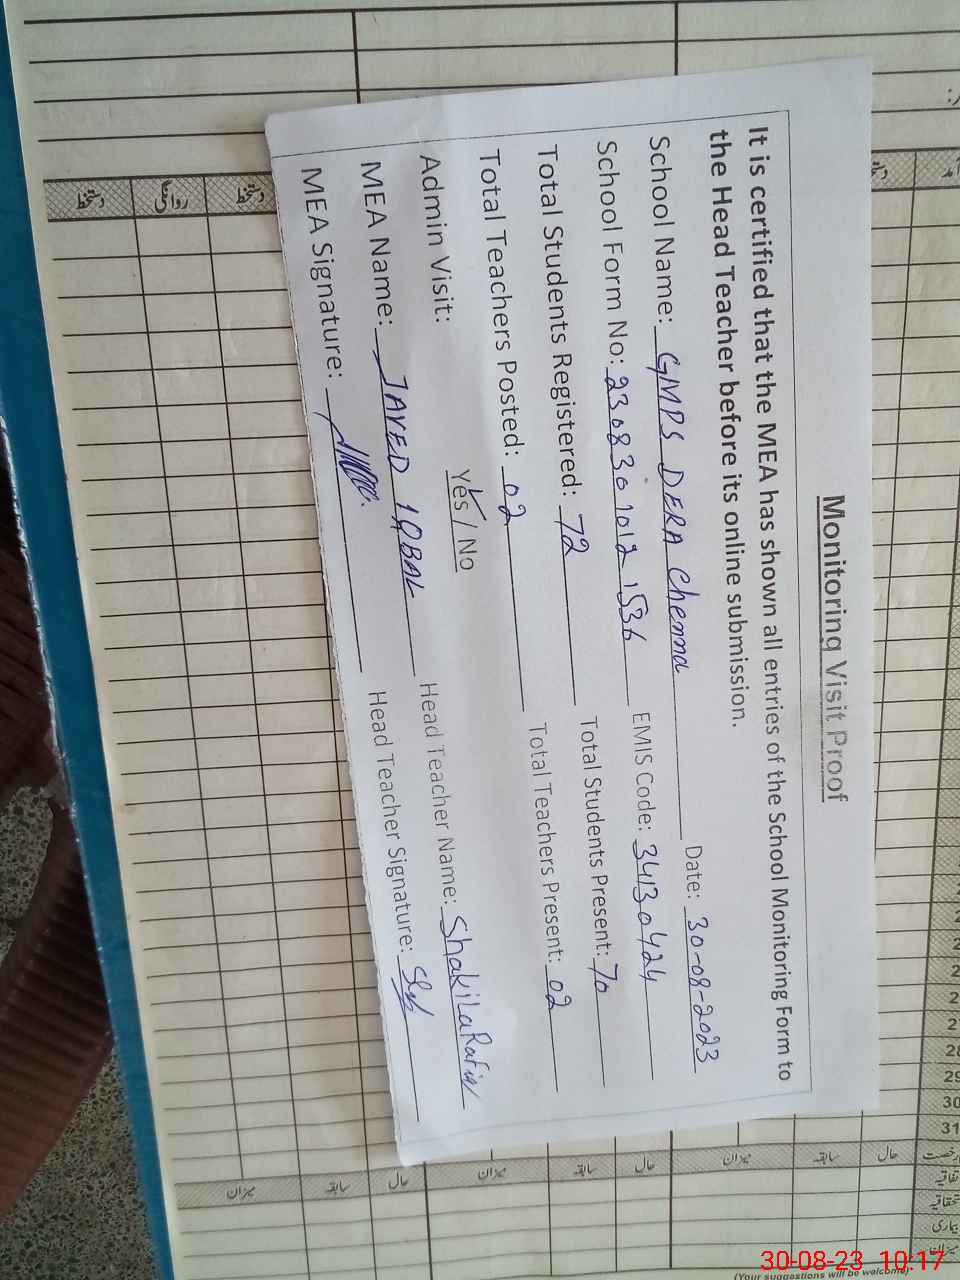 Monitoring Visit Proof
It is certified that the MEA has shown all entries of the School Monitoring Form to
the Head Teacher before its online submission.
School Name: GMPS DERA Cheema Date: 30-08-2023
School Form No: 2308301012 1536 EMIS Code: 34130424
Total Students Registered: 72 Total Students Present: 70
Total Teachers Posted: 02 Total Teachers Present: 02
Admin Visit: Yes / No
MEA Name: JAVED IQBAL Head Teacher Name: Shakila
MEA Signature: Head Teacher Signature:
دستخط
روانگی
دستخط
28
29
30
31
میزان
سابقہ
حال
میزان
سابقہ
حال
میزان
سابقہ
حال
بیماری
میزان
(Your suggestions will be welcome)
30-08-23 10:17